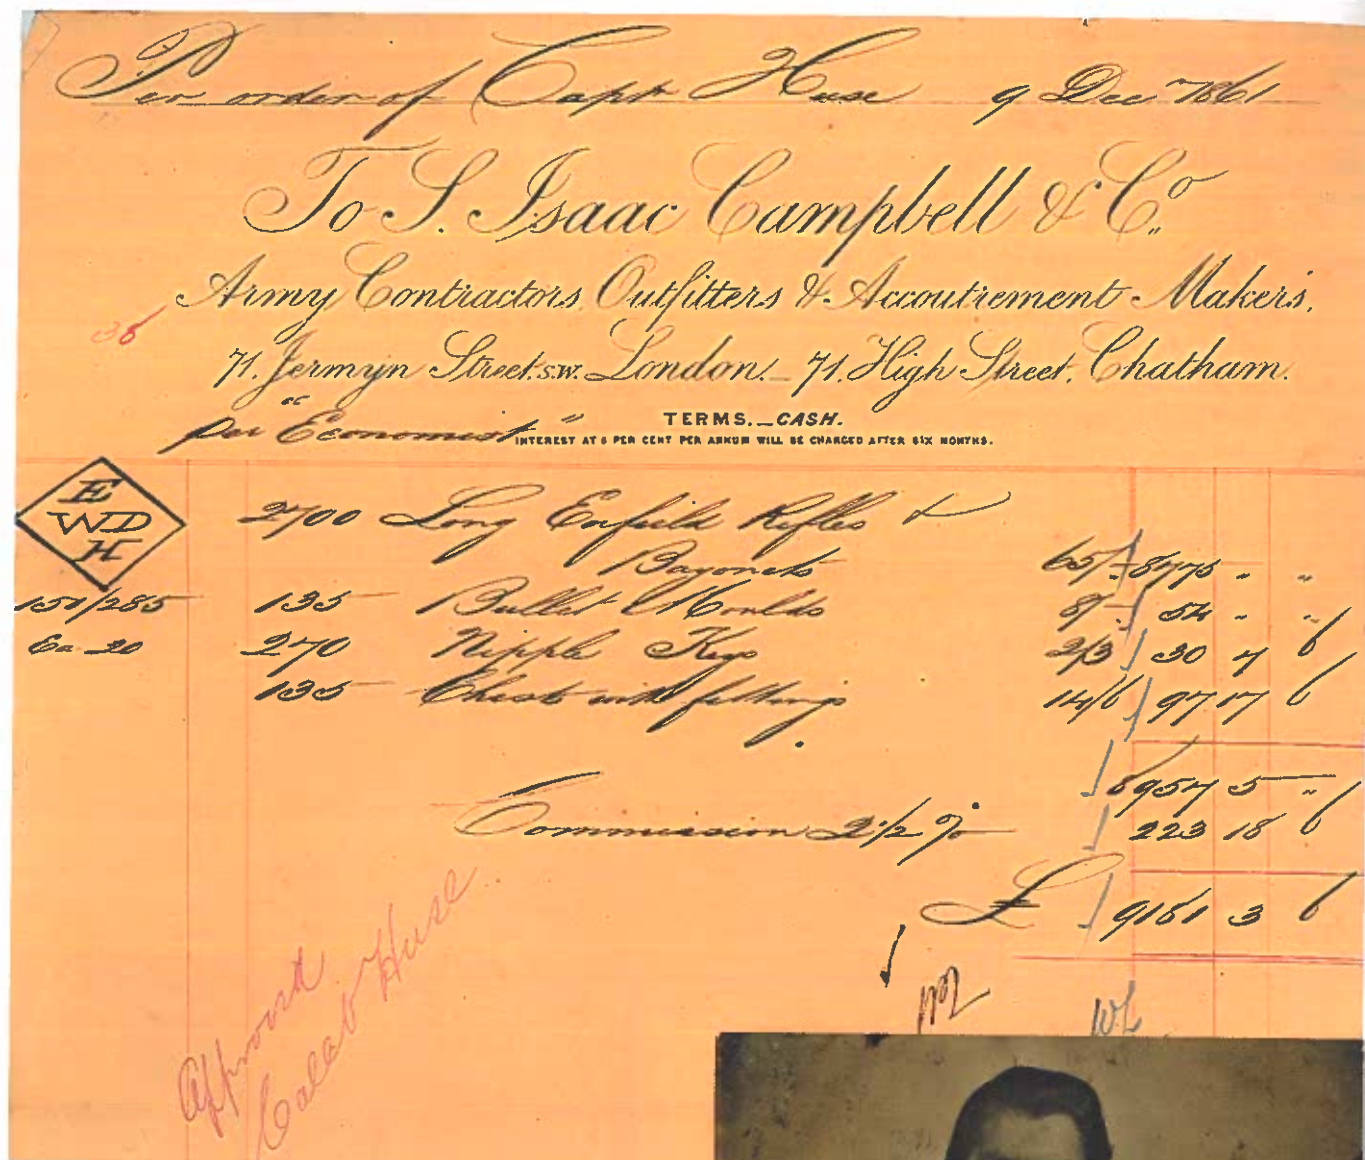 Per order of Capt Huse 9 Dec 1861
To S. Isaac Campbell & Co.
Army Contractors, Outfitters & Accoutrement Makers,
38
71. Jermyn Street. S.W. London. _ 71. High Street, Chatham.
TERMS._CASH.
per "Economist"
INTEREST AT 5 PER CENT PER ANNUM WILL BE CHARGED AFTER SIX MONTHS.
E
WD
H
2700 Long Enfield Rifles &
Bayonets 65/- 8775 " "
151/285 135 Bullet Moulds 8/- 54 " "
Ea 20 270 Nipple Keys 2/3 30 7 6
135 Chests with fittings 14/6 97 17 6
8957 5 "
Commission 2 1/2 % 223 18 6
£ 9181 3 6
WL
Approved
Caleb Huse